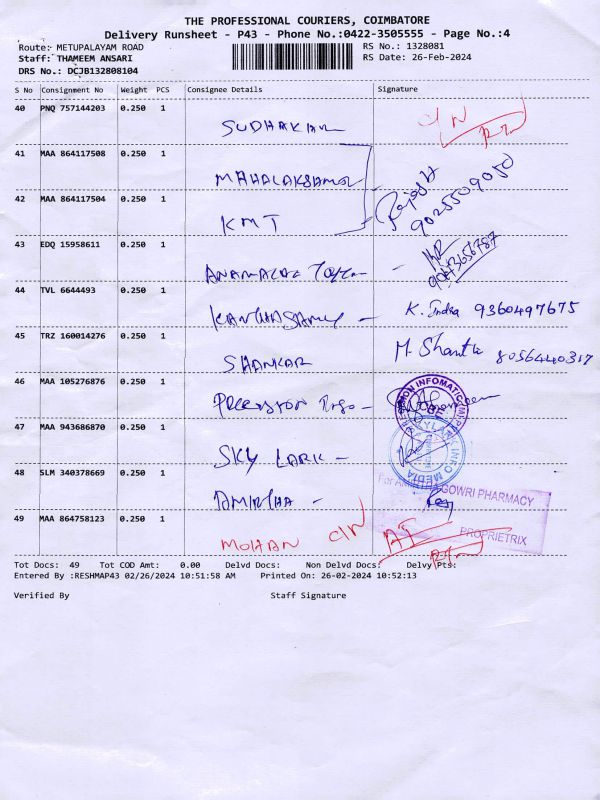 THE PROFESSIONAL COURIERS, COIMBATORE
Delivery Runsheet - P43 - Phone No.:0422-3505555 - Page No.:4
Route: METUPALAYAM ROAD RS No.: 1328081
Staff: THAMEEM ANSARI RS Date: 26-Feb-2024
DRS No.: DCJB132808104
S No Consignment No Weight PCS Consignee Details Signature
40 PNQ 757144203 0.250 1
SUDHAKAR
41 MAA 864117508 0.250 1
MAHALAKSHMI
9025509050
42 MAA 864117504 0.250 1
KMT
43 EDQ 15958611 0.250 1
44 TVL 6644493 0.250 1
KANTHASAMY - K. India 9360497675
45 TRZ 160014276 0.250 1
SHANKAR M. Shanthi 8056440317
46 MAA 105276876 0.250 1
PRECESSION Info -
47 MAA 943686870 0.250 1
SKY LARK -
48 SLM 340378669 0.250 1
AMIRTHA -
GOWRI PHARMACY
49 MAA 864758123 0.250 1
MOHAN
PROPRIETRIX
Tot Docs: 49 Tot COD Amt: 0.00 Delvd Docs: Non Delvd Docs: Delvy Pts:
Entered By :RESHMAP43 02/26/2024 10:51:58 AM Printed On: 26-02-2024 10:52:13
Verified By Staff Signature